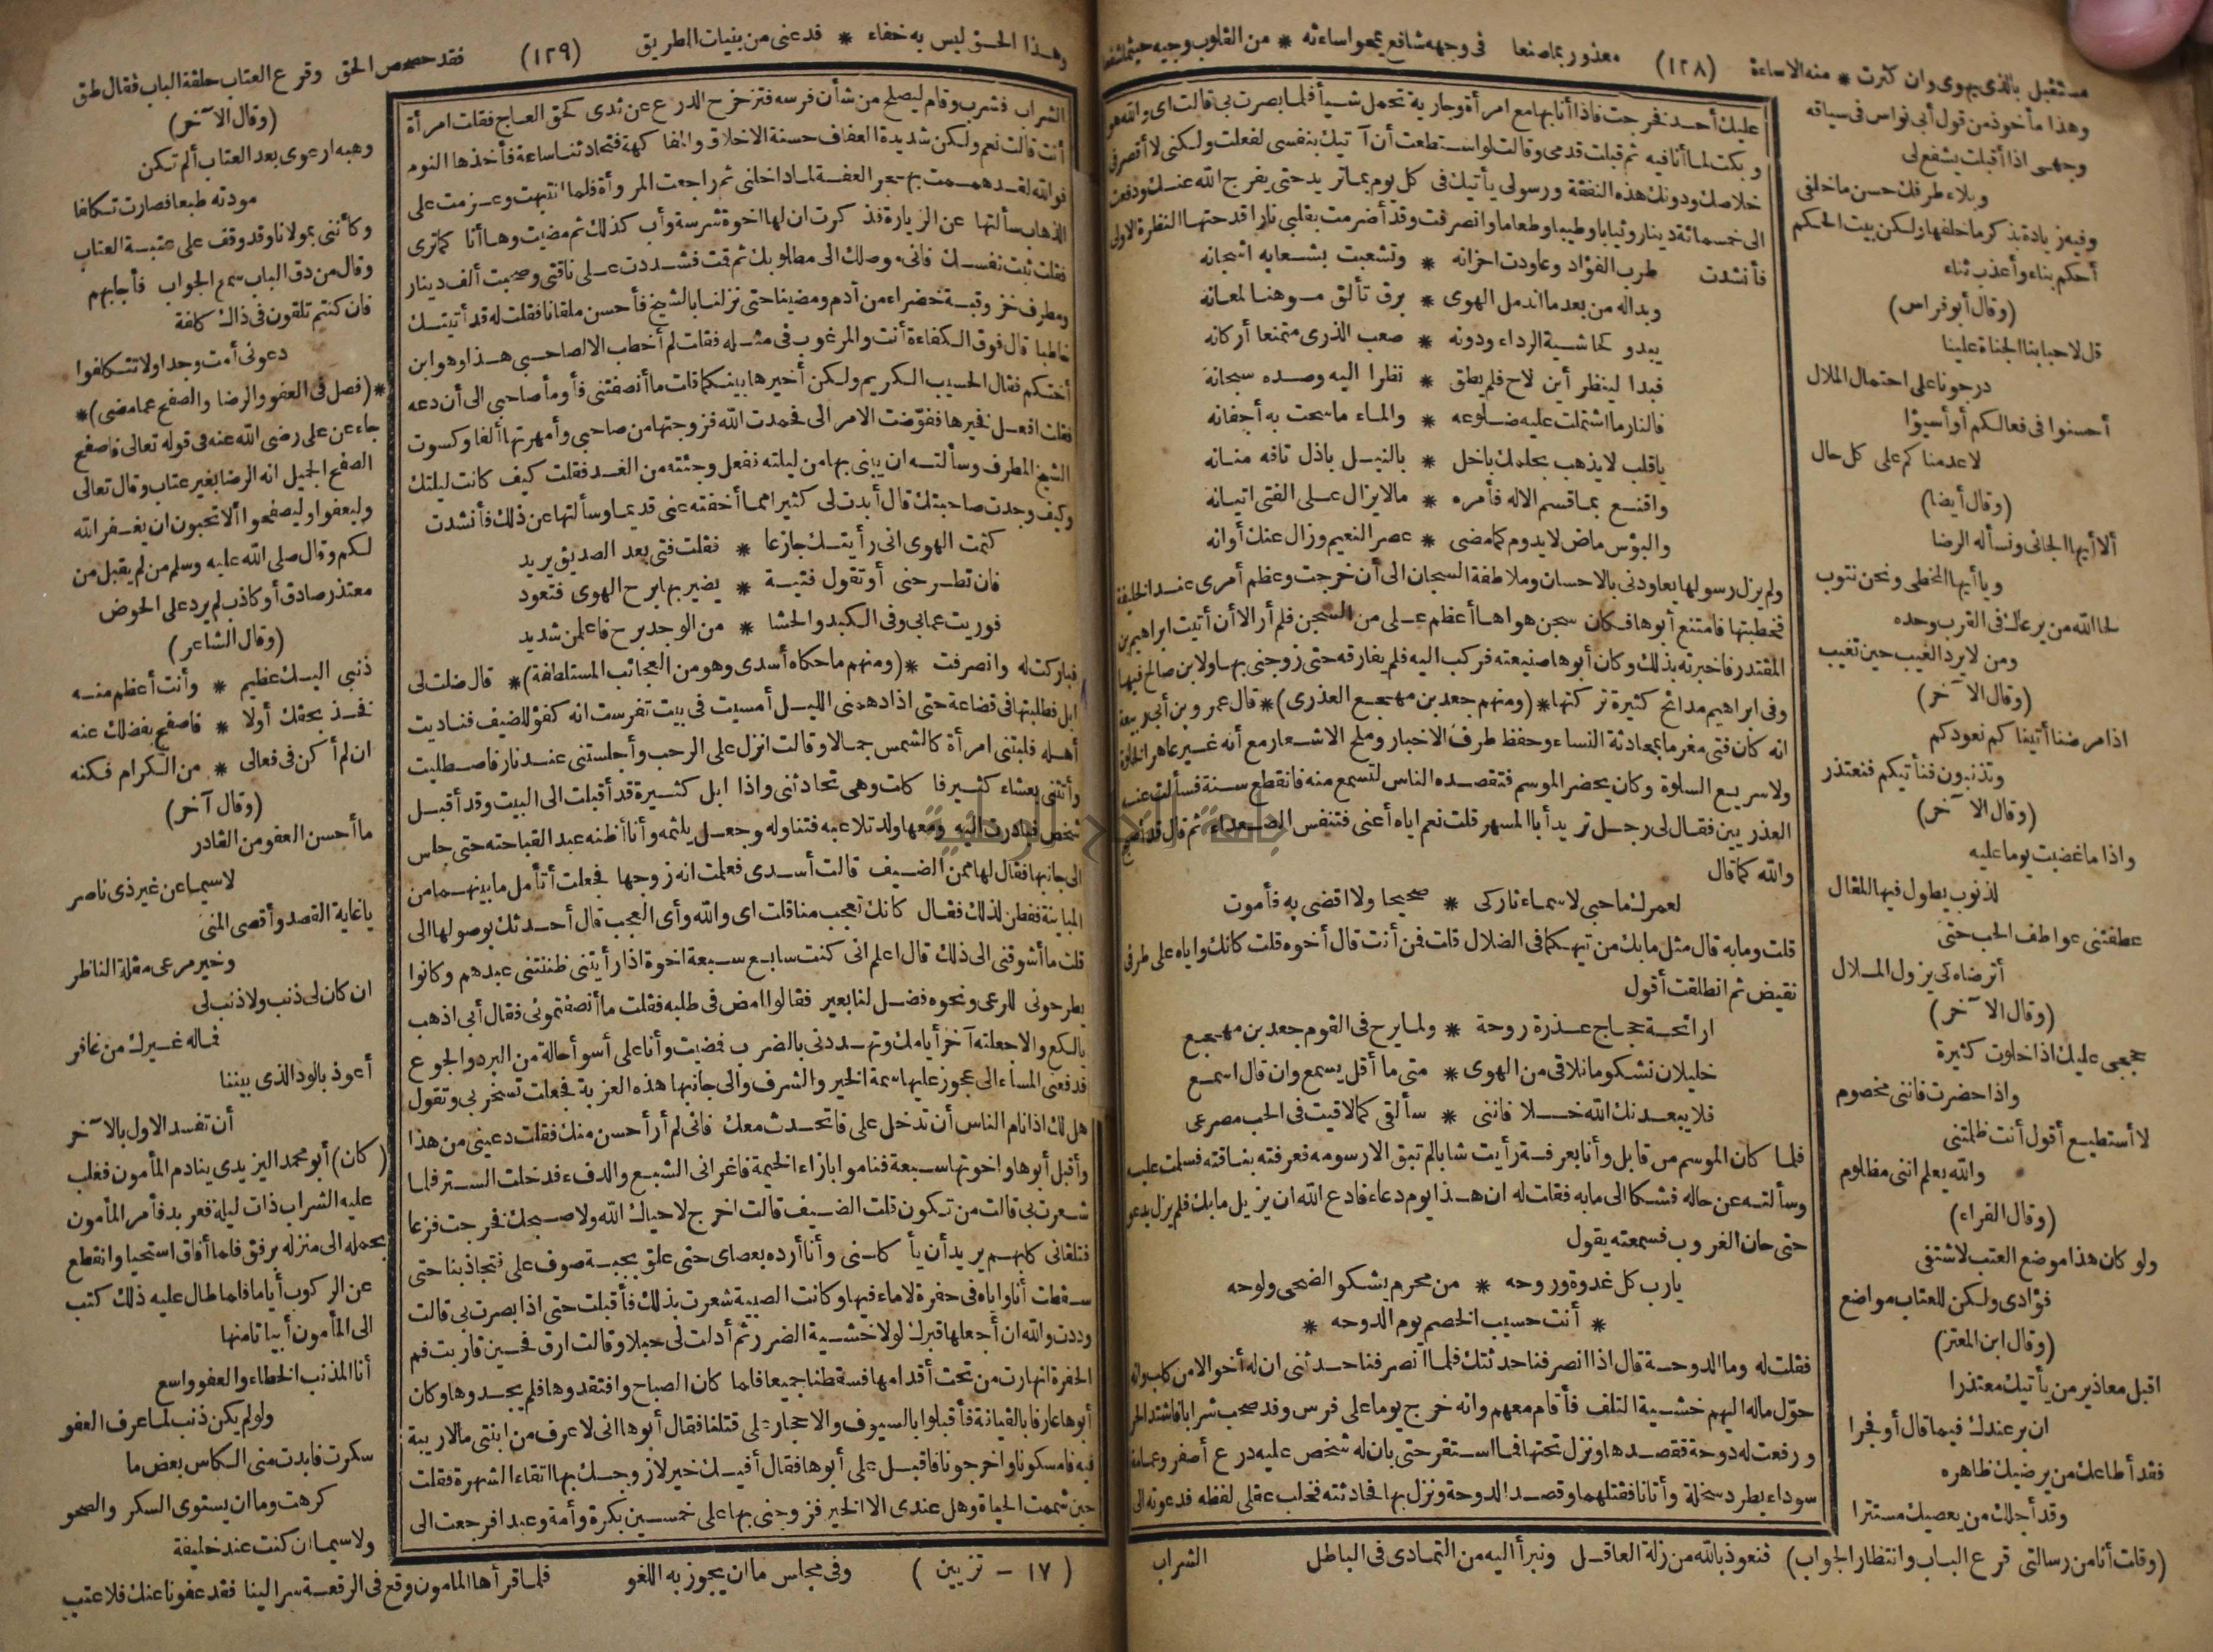 مستقبل بالذى يهوى وان كثرت * منه الاساءة (١٢٨) معذور بما صنعا فى وجهه شافع يمحو اساءته * من القلوب وجيه حيثما شفعا
وهذا مأخوذ من قول أبى نواس فى سياقه
وجهى اذا أقبلت يشفع لى
وبلاء طرفك حسن ما خلفى
وفيه زيادة بذكر ما خلفها ولكن بيت الحكم
أحكم بناء وأعذب ثناء
(وقال أبو فراس)
قل لاحبابنا الجناة علينا
درجونا على احتمال الملال
أحسنوا فى فعالكم أو أسيؤا
لا عدمنا كم على كل حال
(وقال أيضا)
ألا أيها الجانى ونسأله الرضا
ويا أيها المخطى ونحن نتوب
لحا الله من يرعاك فى القرب وحده
ومن لا يرد الغيب حين تغيب
(وقال الآخر)
اذا مرضنا أتيناكم نعودكم
وتذنبون فنأتيكم فنعتذر
(وقال الآخر)
واذا ما غضبت يوما عليه
لذنوب يطول فيها المقال
عطفتنى عواطف الحب حتى
أترضاه كى يزول الملال
(وقال الآخر)
حججى عليك اذا خلوت كثيرة
واذا حضرت فاننى مخصوم
لا أستطيع أقول أنت ظلمتنى
والله يعلم اننى مظلوم
(وقال القراء)
ولو كان هذا موضع العتب لاشتفى
فؤادى ولكن للعتاب مواضع
(وقال ابن المعتز)
اقبل معاذير من يأتيك معتذرا
ان بر عندك فيما قال أو فجرا
فقد أطاعك من يرضيك ظاهره
وقد أجلك من يعصيك مستترا
(وقلت أنا من رسالتى قرع الباب وانتظار الجواب) فنعوذ بالله من زلة العاقل ونبرأ اليه من التمادى فى الباطل الشراب
عليك أحد فخرجت فاذا أنا بها مع امرأة وجارية تحمل شيأ فلما بصرت بى قالت اى والله هو
وبكت لما أنا فيه ثم قبلت قدمى وقالت لو استطعت أن آتيك بنفسى لفعلت ولكنى لا أقصر فى
خلاصك ودونك هذه النفقة ورسولى يأتيك فى كل يوم بما تريد حتى يفرج الله عنك ودفعت
الى خمسمائة دينار وثيابا وطيبا وطعاما وانصرفت وقد أضرمت بقلبى نارا قدحتها النظرة الاولى
فأنشدت طرب الفؤاد وعاودت احزانه * وتشعبت بشعابه اشجانه
وبدا له من بعد ما اندمل الهوى * برق تألق موهنا لمعانه
يبدو كحاشية الرداء ودونه * صعب الذرى متمنعا أركانه
فبدا لينظر أين لاح فلم يطق * نظرا اليه وصده سجانه
فالنار ما اشتملت عليه ضلوعه * والماء ما سحت به أجفانه
يا قلب لا يذهب بحلمك باخل * بالنيل باذل تافه منانه
واقنع بما قسم الاله فأمره * ما لا يزال على الفتى اتيانه
والبؤس ماض لا يدوم كما مضى * عصر النعيم وزال عنك أوانه
ولم يزل رسولها يعاودنى بالاحسان وملاطفة السجان الى أن خرجت وعظم أمرى عند الخليفة
فخطبتها فامتنع أبوها فكان سجن هواها أعظم على من السجن فلم أر الا أن أتيت ابراهيم بن
المقتدر فاخبرته بذلك وكان أبوها صنيعته فركب اليه فلم يفارقه حتى زوجنى بها ولابن صالح فيها
وفى ابراهيم مدائح كثيرة تركتها * (ومنهم جعد بن مهجع العذرى) * قال عمرو بن أبى ربيعة
انه كان فتى مغرما بمحادثة النساء وحفظ طرف الاخبار وملح الاشعار مع أنه غير عاهر الخلوة
ولا سريع السلوة وكان يحضر الموسم فتقصده الناس لتسمع منه فانقطع سنة فسألت عنه
العذريين فقال لى رجل تريد أبا المسهر قلت نعم اياه أعنى فتنفس الصعداء ثم قال قد أصبح
والله كما قال
لعمرك ما حبى لاسماء تاركى * صحيحا ولا اقضى به فأموت
قلت وما به قال مثل ما بك من تيهكما فى الضلال قلت فمن أنت قال أخوه قلت كانك واياه على طرفى
نقيض ثم انطلقت أقول
ارائحة حجاج عذرة روحة * ولما يرح فى القوم جعد بن مهجع
خليلان نشكو ما نلاقى من الهوى * متى ما أقل يسمع وان قال اسمع
فلا يبعدنك الله خلا فاننى * سألقى كما لاقيت فى الحب مصرعى
فلما كان الموسم من قابل وأنا بعرفة رأيت شابا لم تبق الا رسومه فعرفته بناقته فسلمت عليه
وسألته عن حاله فشكا الى ما به فقلت له ان هذا يوم دعاء فادع الله ان يزيل ما بك فلم يزل يدعو
حتى حان الغروب فسمعته يقول
يا رب كل غدوة وروحه * من محرم يشكو الضحى ولوحه
* أنت حسيب الخصم يوم الدوحه *
فقلت له وما الدوحة قال اذا انصرفنا حدثتك فلما انصرفنا حدثنى ان له أخوالا من كلب وانه
حول ماله اليهم خشية التلف فأقام معهم وانه خرج يوما على فرس وقد صحب شرابا فاشتد الحر
ورفعت له دوحة فقصدها ونزل تحتها فما استقر حتى بان له شخص عليه درع أصفر وعمامة
سوداء يطرد سخلة وأتانا فقتلهما وقصد الدوحة ونزل بها فحادثته فخلب عقلى لفظه فدعوته الى
وهذا الحق ليس به خفاء * فدعنى من بنيات الطريق (١٢٩) فقد حصحص الحق وقرع العتاب حلقة الباب فقال طق
الشراب فشرب وقام ليصلح من شأن فرسه فتزحزح الدرع عن ثدى كحق العاج فقلت امرأة
أنت قالت نعم ولكن شديدة العفاف حسنة الاخلاق والمفاكهة فتحادثنا ساعة فأخذها النوم
فوالله لقد هممت بهجر العفة لما داخلنى ثم راجعت المروأة فلما انتبهت وعزمت على
الذهاب سألتها عن الزيارة فذكرت ان لها اخوة شرسة وأب كذلك ثم مضيت وها أنا كما ترى
فقلت ثبت نفسك فانى موصلك الى مطلوبك ثم قمت فشددت على ناقتى وصحبت ألف دينار
ومطرف خز وقبة خضراء من آدم ومضينا حتى نزلنا بالشيخ فأحسن ملقانا فقلت له قد أتيتك
خاطبا قال فوق الكفاءة أنت والمرغوب فى مثله فقلت لم أخطب الا لصاحبى هذا وهو ابن
أختكم فقال الحسيب الكريم ولكن أخيرها بينكما قلت ما أنصفتنى فأومأ صاحبى الى أن دعه
فقلت افعل فخيرها ففوضت الامر الى فحمدت الله فزوجتها من صاحبى وأمهرتها ألفا وكسوت
الشيخ المطرف وسألته ان يبنى بها من ليلته ففعل وجئته من الغد فقلت كيف كانت ليلتك
وكيف وجدت صاحبتك قال أبدت لى كثيرا مما أخفته عنى قديما وسألتها عن ذلك فأنشدت
كتمت الهوى انى رأيتك جازعا * فقلت فتى بعد الصديق يريد
فان تطرحنى أو تقول فتية * يضير بها برح الهوى فتعود
فوريت عما بى وفى الكبد والحشا * من الوجد برح فاعلمن شديد
فباركت له وانصرفت * (ومنهم ما حكاه أسدى وهو من العجائب المستلطفة) * قال ضلت لى
ابل فطلبتها فى قضاعة حتى اذا دهمنى الليل أمسيت فى بيت تفرست انه كفؤ للضيف فناديت
أهله فلبتنى امرأة كالشمس جمالا وقالت انزل على الرحب وأجلستنى عند نار فاصطليت
وأتتنى بعشاء كثير فاكلت وهى تحادثنى واذا ابل كثيرة قد أقبلت الى البيت وقد أقبل
شخص فبادرت اليه ومعها ولد تلاعبه فتناوله وجعل يلثمه وأنا أظنه عبد القباحته حتى جلس
الى جانبها فقال لها ممن الضيف قالت أسدى فعلمت انه زوجها فجعلت أتأمل ما بينهما من
المباينة ففطن لذلك فقال كانك تعجب منا قلت اى والله وأى العجب قال أحدثك بوصولها الى
قلت ما أشوقنى الى ذلك قال اعلم انى كنت سابع سبعة اخوة اذا رأيتنى ظننتنى عبدهم وكانوا
يطرحونى للرعى ونحوه فضل لنا بعير فقالوا امض فى طلبه فقلت ما أنصفتمونى فقال أبى اذهب
يالكع والا جعلته آخر أيامك وتهددنى بالضرب فمضيت وأنا على أسوأ حالة من البرد والجوع
فدفعنى المساء الى عجوز عليها سمة الخير والشرف والى جانبها هذه العزبة فجعلت تسخر بى وتقول
هل لك اذا نام الناس أن تدخل على فاتحدث معك فانى لم أر أحسن منك فقلت دعينى من هذا
وأقبل أبوها واخوتها سبعة فناموا بازاء الخيمة فاغرانى الشبع والدفء فدخلت الستر فلما
شعرت بى قالت من تكون قلت الضيف قالت اخرج لا حياك الله ولا صبحك فخرجت فزعا
فتلقانى كلبهم يريد أن يأكلنى وأنا أرده بعصاى حتى علق بجبة صوف على فتجاذبنا حتى
سقطت أنا واياه فى حفرة لا ماء فيها وكانت الصبية شعرت بذلك فأقبلت حتى اذا بصرت بى قالت
وددت والله ان أجعلها قبرك لولا خشية الضرر ثم أدلت لى حبلا وقالت ارق فحين قاربت فم
الحفرة انهارت من تحت أقدامها فسقطنا جميعا فلما كان الصباح وافتقدوها فلم يجدوها وكان
أبوها عارفا بالقيافة فأقبلوا بالسيوف والاحجار على قتلنا فقال أبوها انى لا عرف من ابنتى ما لا ريبة
فيه فامسكونا واخرجونا فاقبل على أبوها فقال أفيك خير لازوجك بها اتقاء الشهرة فقلت
حين شممت الحياة وهل عندى الا الخير فزوجنى بها على خمسين بكرة وأمة وعبد افرجعت الى
(وقال الآخر)
وهبه ارعوى بعد العتاب ألم تكن
مودته طبعا فصارت تكلفا
وكأننى بمولانا وقد وقف على عتبة العتاب
وقال من دق الباب سمع الجواب فأجابهم
فان كنتم تلقون فى ذاك كلفة
دعونى أمت وجدا ولا تتكلفوا
* (فصل فى العفو والرضا والصفح عما مضى) *
جاء عن على رضى الله عنه فى قوله تعالى فاصفح
الصفح الجميل انه الرضا بغير عتاب وقال تعالى
وليعفوا وليصفحوا ألا تحبون ان يغفر الله
لكم وقال صلى الله عليه وسلم من لم يقبل من
معتذر صادق أو كاذب لم يرد على الحوض
(وقال الشاعر)
ذنبى اليك عظيم * وأنت أعظم منه
فخذ بحقك أولا * فاصفح بفضلك عنه
ان لم أكن فى فعالى * من الكرام فكنه
(وقال آخر)
ما أحسن العفو من القادر
لا سيما عن غير ذى ناصر
يا غاية القصد وأقصى المنى
وخير مرعى مقلة الناظر
ان كان لى ذنب ولا ذنب لى
فما له غيرك من غافر
أعوذ بالود الذى بيننا
أن تفسد الاول بالآخر
(كان) أبو محمد اليزيدى ينادم المأمون فغلب
عليه الشراب ذات ليلة فعربد فأمر المأمون
بحمله الى منزله برفق فلما أفاق استحيا وانقطع
عن الركوب أياما فلما طال عليه ذلك كتب
الى المأمون أبياتا منها
أنا المذنب الخطاء والعفو واسع
ولو لم يكن ذنب لما عرف العفو
سكرت فابدت منى الكاس بعض ما
كرهت وما ان يستوى السكر والصحو
ولا سيما ان كنت عند خليفة
(١٧ - تزيين) وفى مجلس ما ان يجوز به اللغو فلما قرأها المامون وقع فى الرقعة سر الينا فقد عفونا عنك فلا عتب